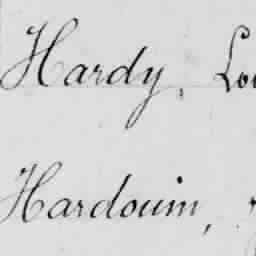 Hardy, Lou
Hardouin,